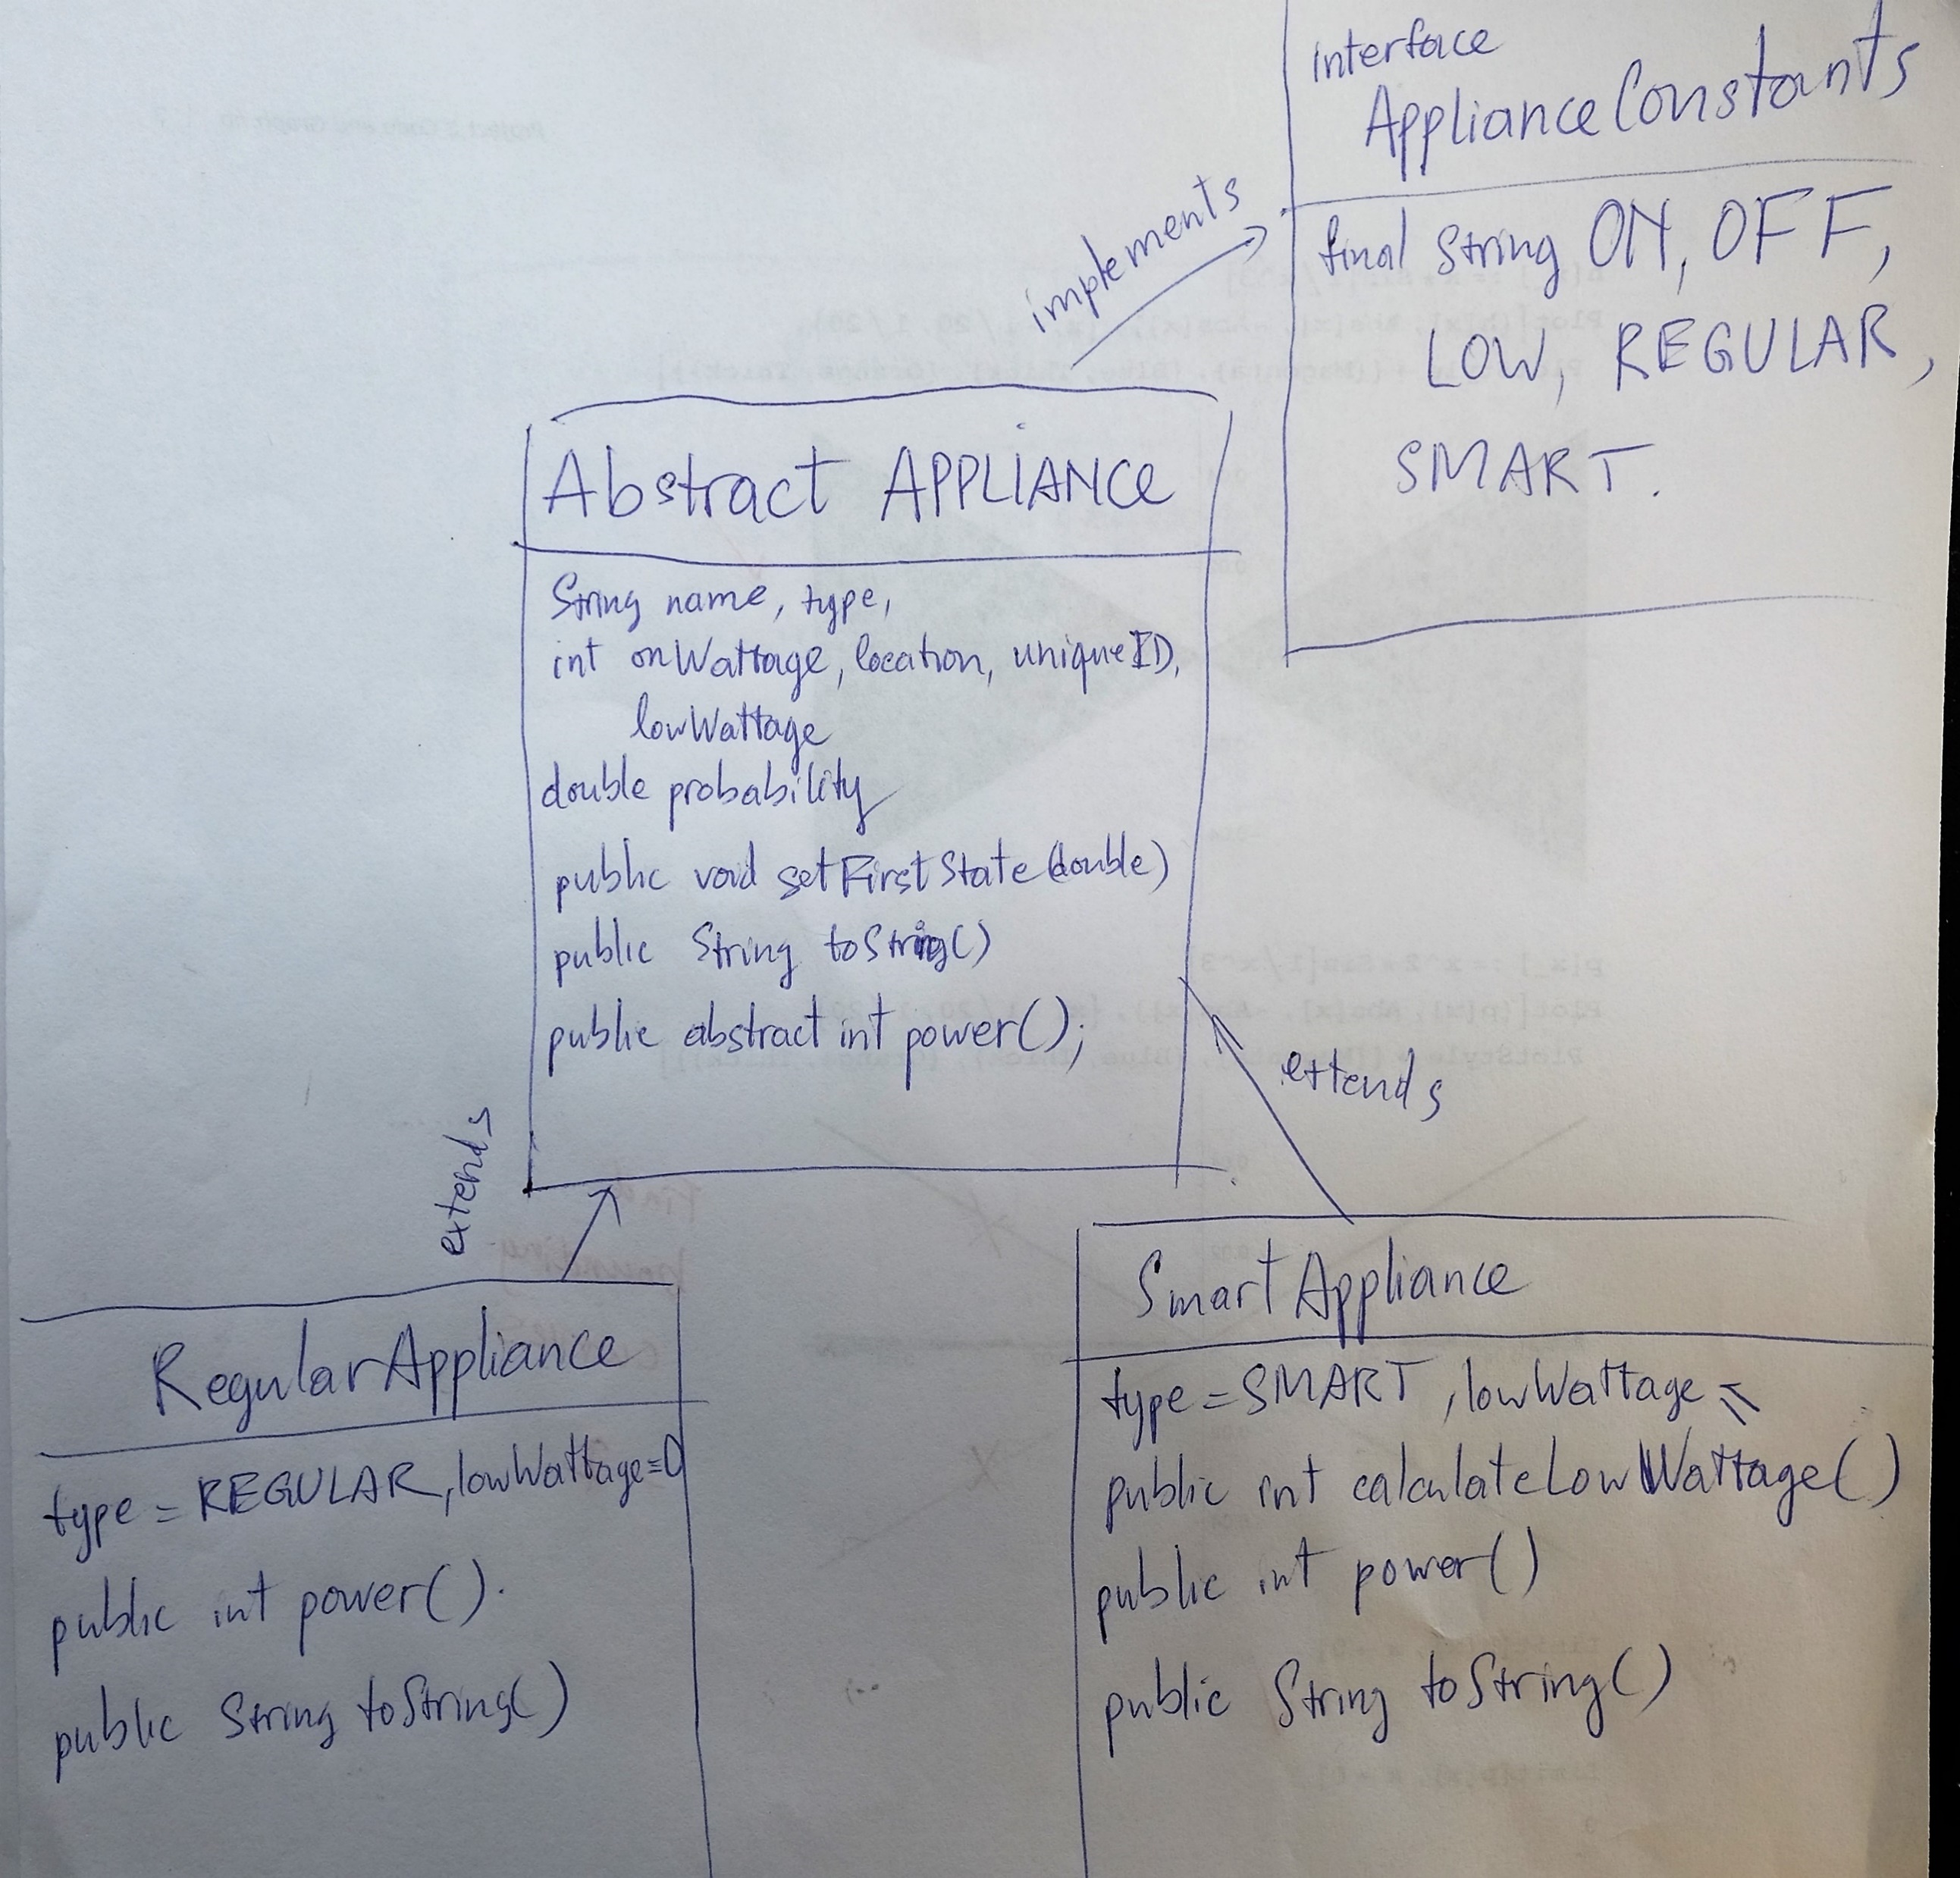 interface
ApplianceConstants
final String ON, OFF,
LOW, REGULAR,
SMART.
implements
Abstract APPLIANCE
String name, type,
int onWattage, location, uniqueID,
lowWattage
double probability
public void setFirstState(double)
public String toString()
public abstract int power();
extends
extends
RegularAppliance
type = REGULAR, lowWattage=0
public int power().
public String toString()
SmartAppliance
type = SMART, lowWattage =
public int calculateLowWattage()
public int power()
public String toString()